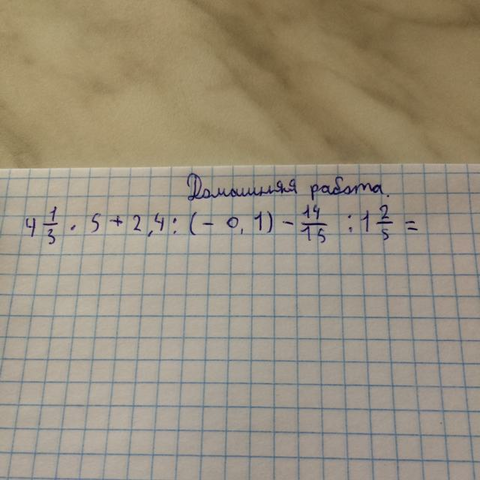 Домашняя работа.
4 1/3 · 5 + 2,4 : (- 0,1) - 14/15 : 1 2/5 =